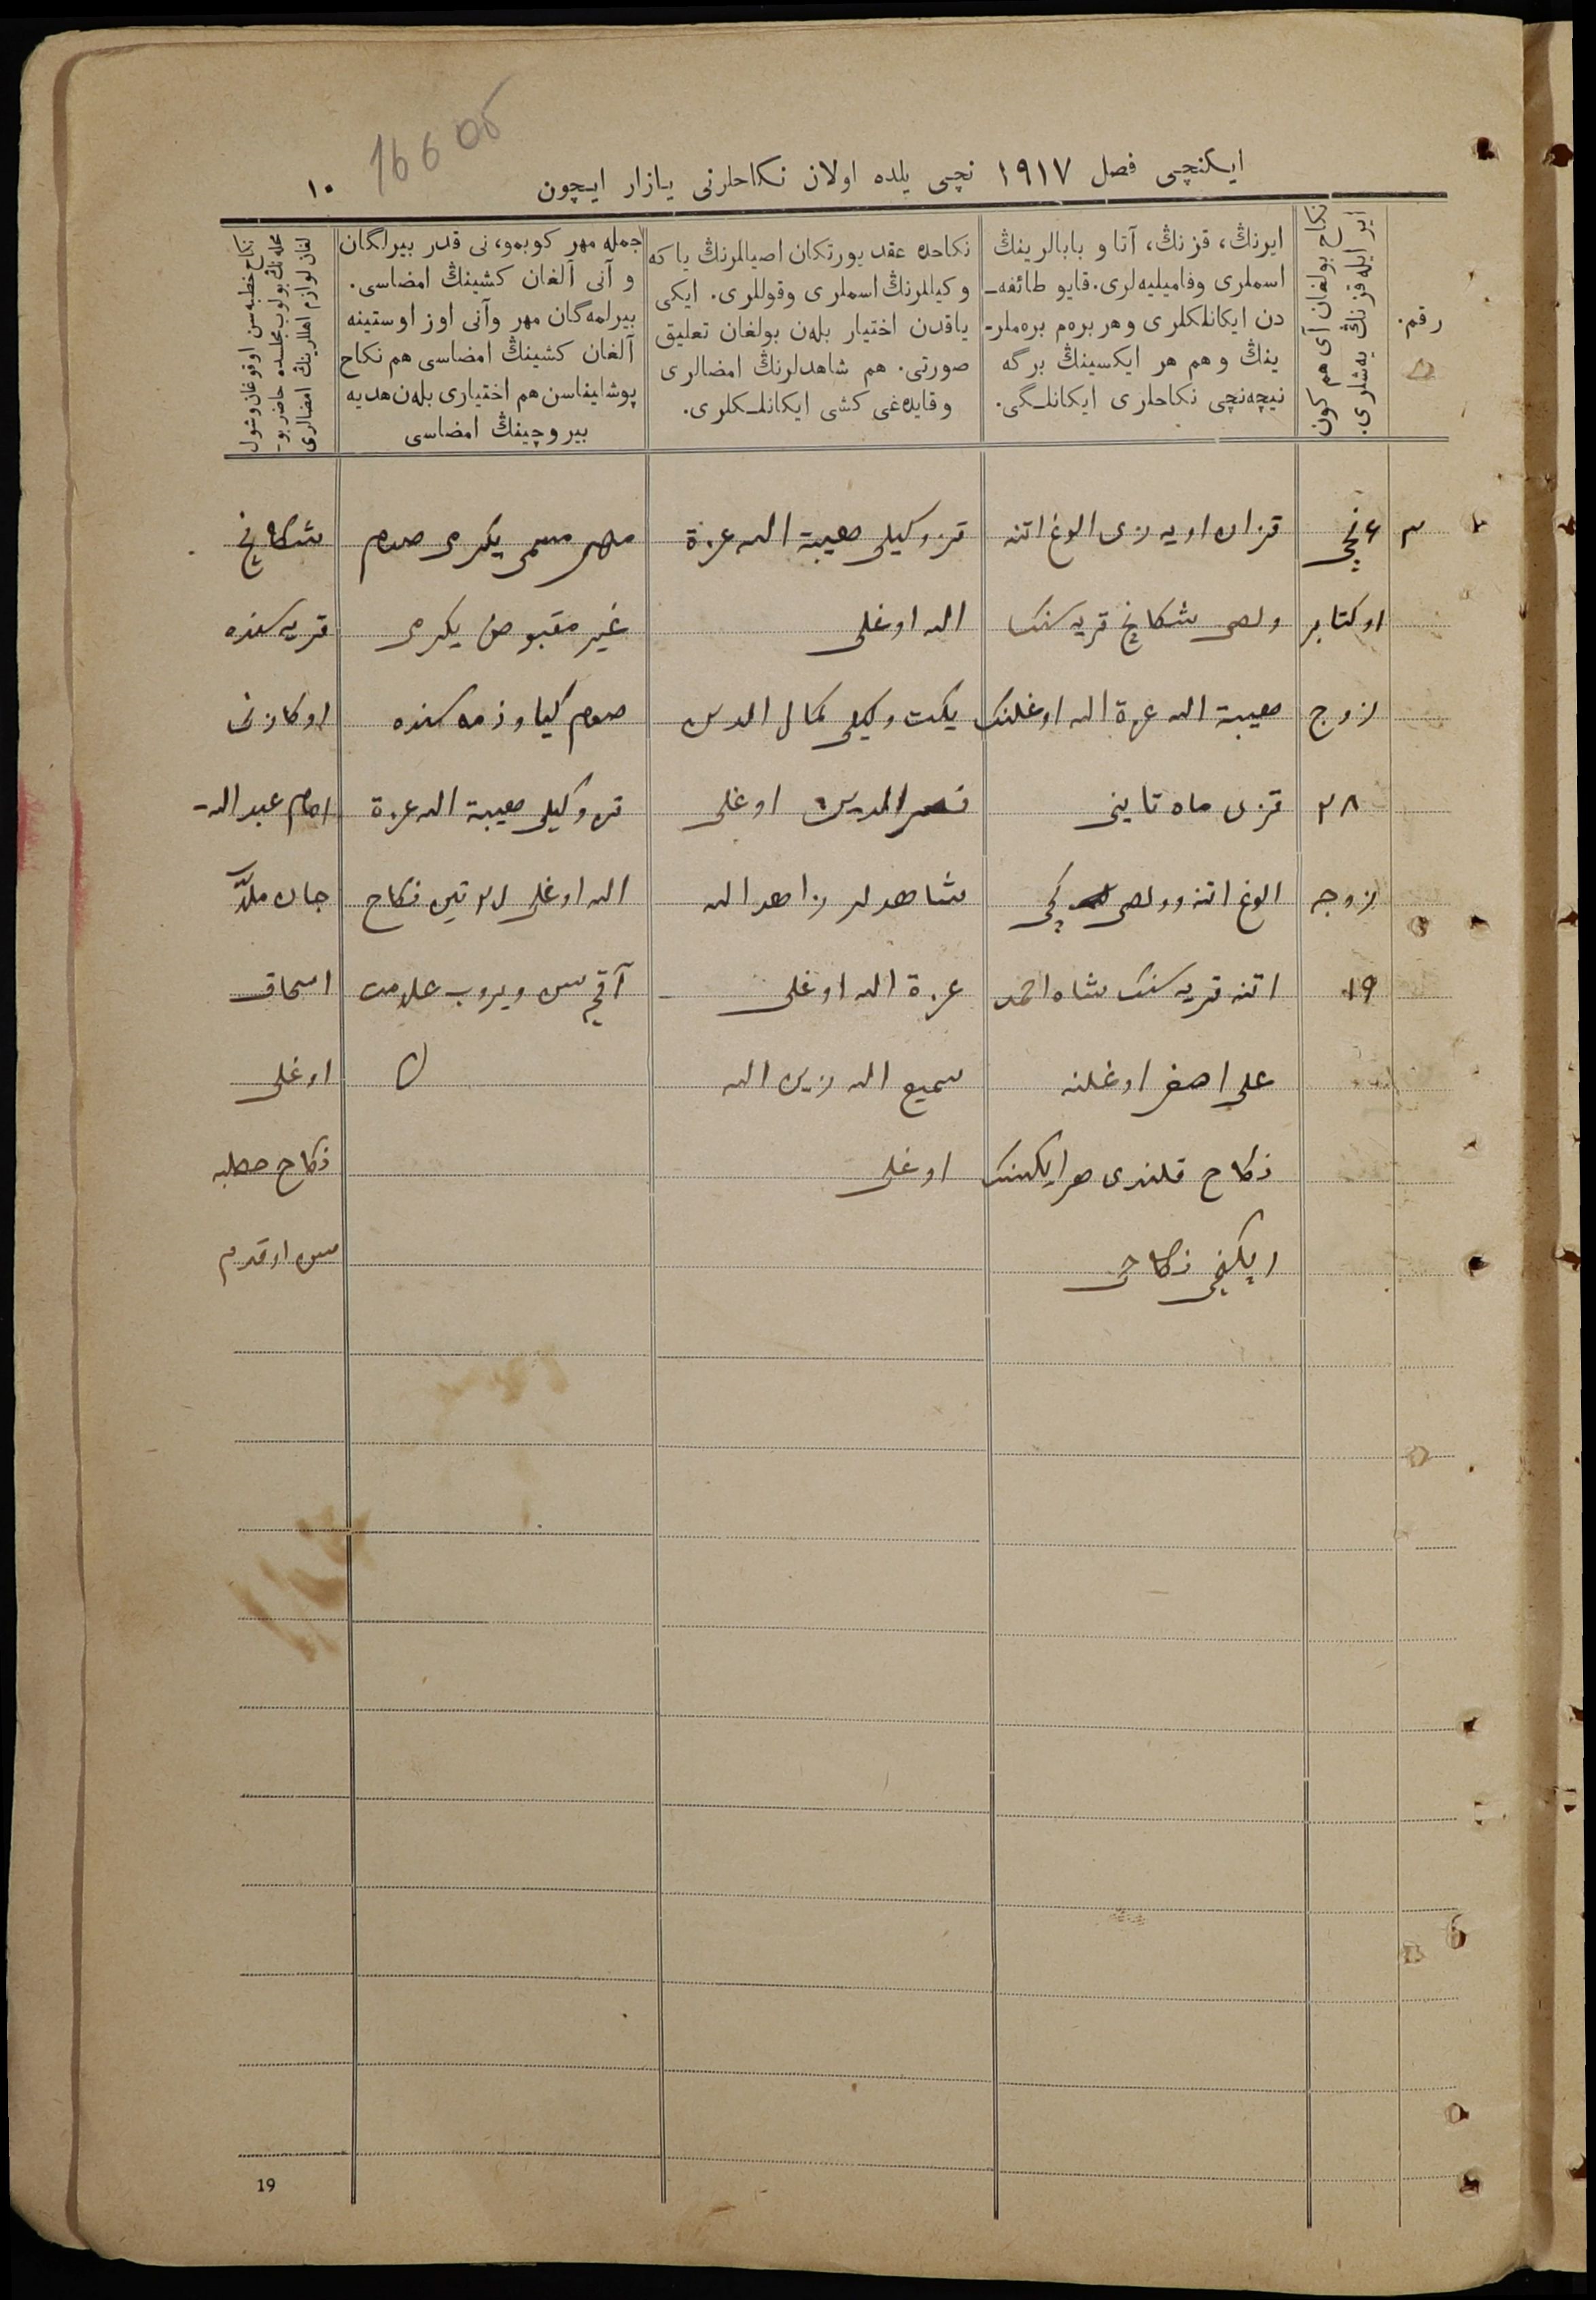 166 об
ایکنچی فصل ١٩١٧ نچی یلده اولان نکاحلرنی یازار ایچون
١٠
رقم.
نکاح بولغان آی هم کون
ایر ایله قزنڭ یه‌شلری.
ایرنڭ، قزنڭ، آتا و بابالرینڭ
اسملری وفامیلیه‌لری. قایو طائفه‌ـ
دن ایکانلکلری و هر بره‌م بره‌ملرـ
ینڭ و هم هر ایکسینڭ برگه
نیچه‌نچی نکاحلری ایکانلـگی.
نکاحده عقد یورتکان اصیاللرنڭ یا که
وکیللرنڭ اسملری وقوللری. ایکی
یاقدن اختیار بلەن بولغان تعلیق
صورتی. هم شاهدلرنڭ امضالری
وقایدەغی کشی ایکانلـکلری.
جمله مهر کوبمو، نی قدر بیرلگان
و آنی آلغان کشینڭ امضاسی.
بیرلمەگان مهر وآنی اوز اوستینه
آلغان کشینڭ امضاسی هم نکاح
پوشلیناسن هم اختیاری بلەن هدیه
بیروچینڭ امضاسی
نکاح خطبه‌سن اوقوغان وشول
محله‌نڭ بولوب مجلسده حاضر بوـ
لغان لوازم اهللرینڭ امضالری
٣
٤ نچی
اوکتابر
زوج
٢٨
زوجه
١٩
قزان اویه زی الوغ اتنه
ولصی شکانچ قریه سنک
حبیبة الله عزة الله اوغلینک
قزی ماه تابینی
الوغ اتنه وولصی کچی
اتنه قریه سنک شاه احمد
علی اصغر اوغلنه
نکاح قلندی هر ایکسنک
ایکنچی نکاحی
قز وکیلی حبیبة الله عزة
الله اوغلی
یکت وکیلی کمال الدین
نصر الدین اوغلی
شاهدلر زاهد الله
عزة الله اوغلی
سمیع الله زین الله
اوغلی
مهر مسمی یکرمی صوم
غیر مقبوض یکرمی
صوم کیاو ذمه سنده
قز وکیلی حبیبة الله عزة
الله اوغلی ٢٥ تین نکاح
آقچه سن ویروب علامت
شکانچ
قریه سنده
اوکازنی
امام عبد اللهـ
جان ملا
اسحاق
اوغلی
نکاح خطبه
سن اوقدم
19